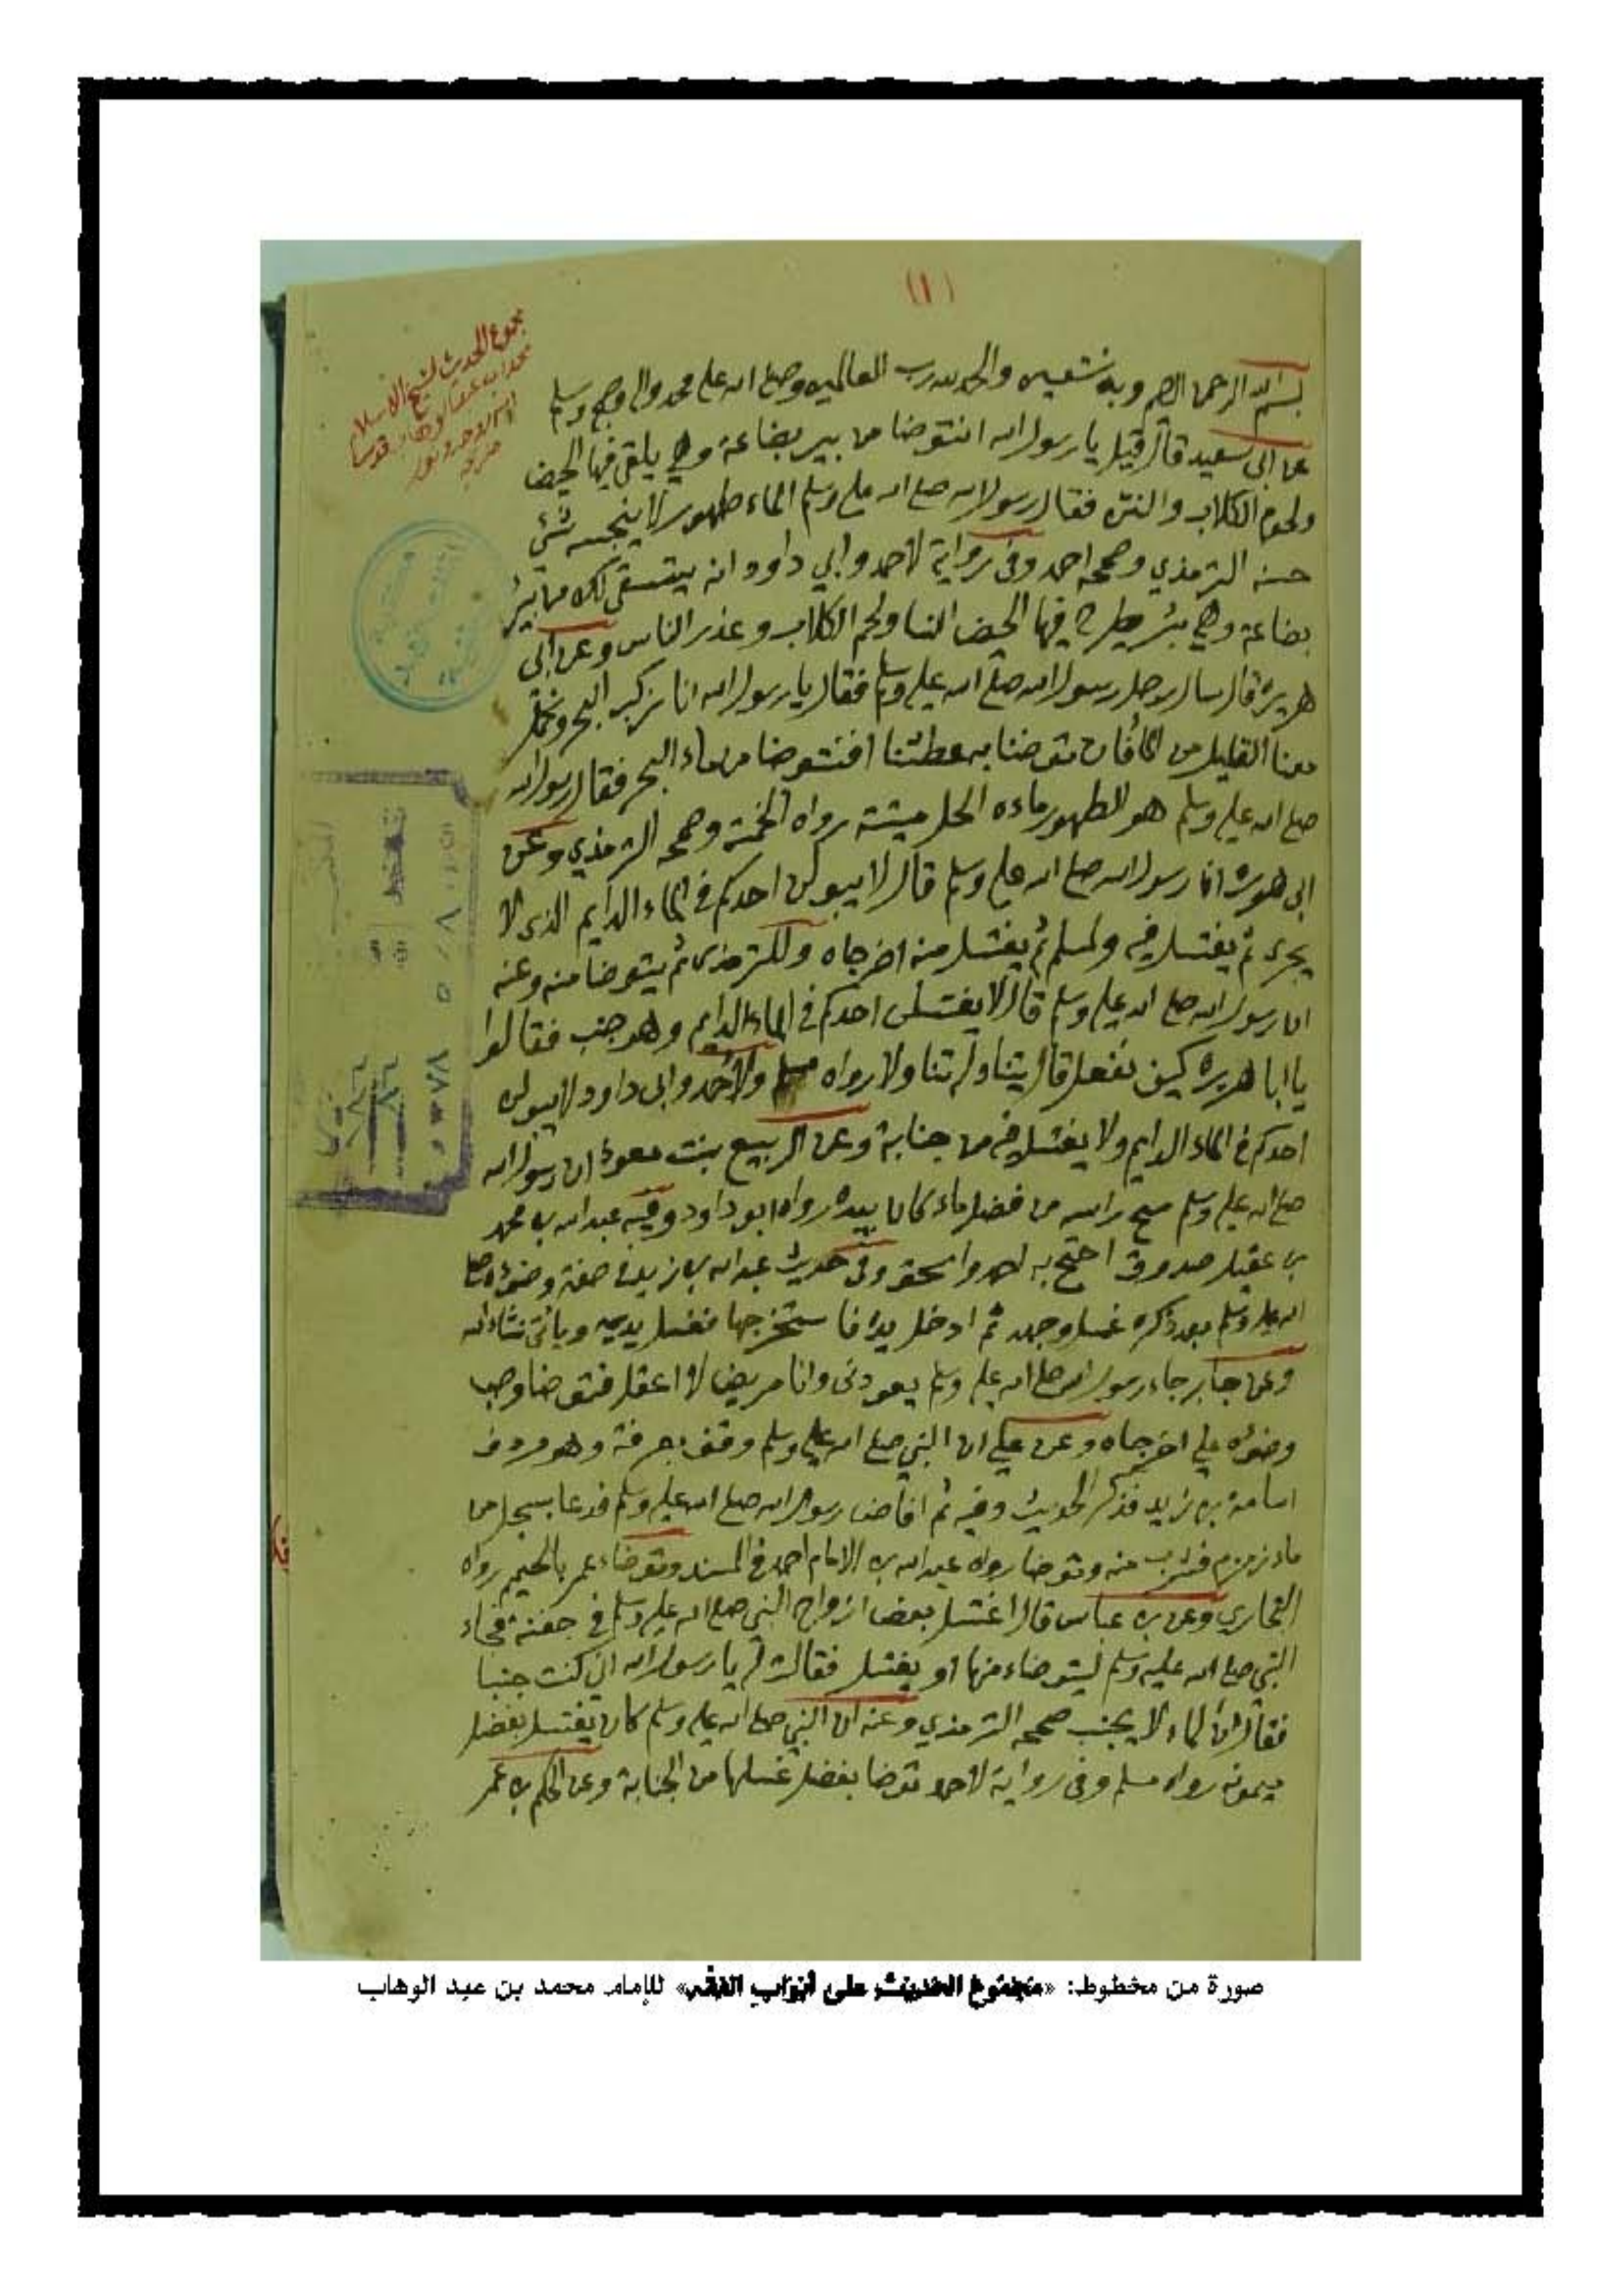 (١)
مجموع الحديث لشيخ الاسلام
بسم الله الرحمن الرحيم وبه نستعين والحمد لله رب العالمين وصلى الله على محمد وآله وصحبه وسلم
عن ابي سعيد قال قيل يا رسول الله انتوضا من بير بضاعة وهي يلقى فيها الحيض
ولحوم الكلاب والنتن فقال رسول الله صلى الله عليه وسلم الماء طهور لا ينجسه شئ
حسنه الترمذي وصححه احمد وفى رواية لاحمد وابي داود انه يستسقى لك من بئر
بضاعة وهي بئر يطرح فيها الحيض النسا ولحم الكلاب وعذر الناس وعن ابى
هريرة قال سال رجل رسول الله صلى الله عليه وسلم فقال يا رسول الله انا نركب البحر ونحمل
معنا القليل من الما فان توضنا به عطشنا افنتوضا من ماء البحر فقال رسول الله
صلى الله عليه وسلم هو الطهور ماءه الحل ميتته رواه الخمسة وصححه الترمذي وعن
ابى هريرة ان رسول الله صلى الله عليه وسلم قال لا يبولن احدكم في الماء الدايم الذى لا
يجرى ثم يغتسل فيه ولمسلم ثم يغتسل منه اخرجاه وللترمذى ثم يتوضا منه وعنه
ان رسول الله صلى الله عليه وسلم قال لا يغتسلن احدكم في الماء الدايم وهو جنب فقالوا
يا ابا هريرة كيف نفعل قال يتناوله تناولا رواه مسلم ولاحمد وابى داود لا يبولن
احدكم في الماء الدايم ولا يغتسل فيه من جنابة وعن الربيع بنت معوذ ان رسول الله
صلى الله عليه وسلم مسح راسه من فضل ماء كان بيده رواه ابو داود وفيه عبد الله بن محمد
بن عقيل صدوق احتج به احمد واسحق وفى حديث عبد الله بن زيد في صفة وضوءه صلى
الله عليه وسلم بعد ذكره غسل وجهه ثم ادخل يده فاستخرجها فغسل يديه وياتى ان شاء الله
وعن جابر جاء رسول الله صلى الله عليه وسلم يعودنى وانا مريض لا اعقل فتوضا وصب
وضوءه علي اخرجاه وعن علي ان النبي صلى الله عليه وسلم وقف بعرفة وهو مردف
اسامة بن زيد فذكر الحديث وفيه ثم افاض رسول الله صلى الله عليه وسلم فدعا بسجل من
ماء زمزم فشرب منه وتوضا رواه عبد الله بن الامام احمد في المسند وتوضاء عمر بالحميم رواه
البخاري وعن بن عباس قال اغتسل بعض ازواج النبي صلى الله عليه وسلم في جفنة فجاء
النبي صلى الله عليه وسلم ليتوضاء منها او يغتسل فقالت له يا رسول الله اني كنت جنبا
فقال ان الماء لا يجنب صححه الترمذي وعنه ان النبي صلى الله عليه وسلم كان يغتسل بفضل
ميمونه رواه مسلم وفى رواية لاحمد توضا بفضل غسلها من الجنابة وعن الحكم بن عمر
صورة من مخطوط: «مجموع الحديث على أبواب الفقه» للإمام محمد بن عبد الوهاب